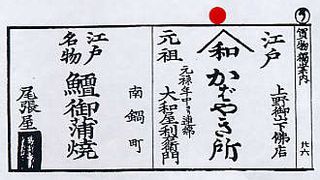 う
買物獨案内
江戸
上野御山下佛店
和
かばやき所
元禄年中ゟ連綿
元祖
大和屋
江戸
名物
鱣御蒲焼
南鍋町
尾張屋